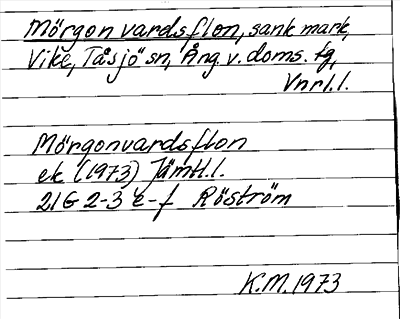 Mörgonvardsflon, sank mark,
Vike, Tåsjö sn, Ång. v. doms. tg,
Vnrl. l.
Mörgonvardsflon
ek (1973) Jämtl. l.
21G 2-3 e-f Röström
K.M. 1973